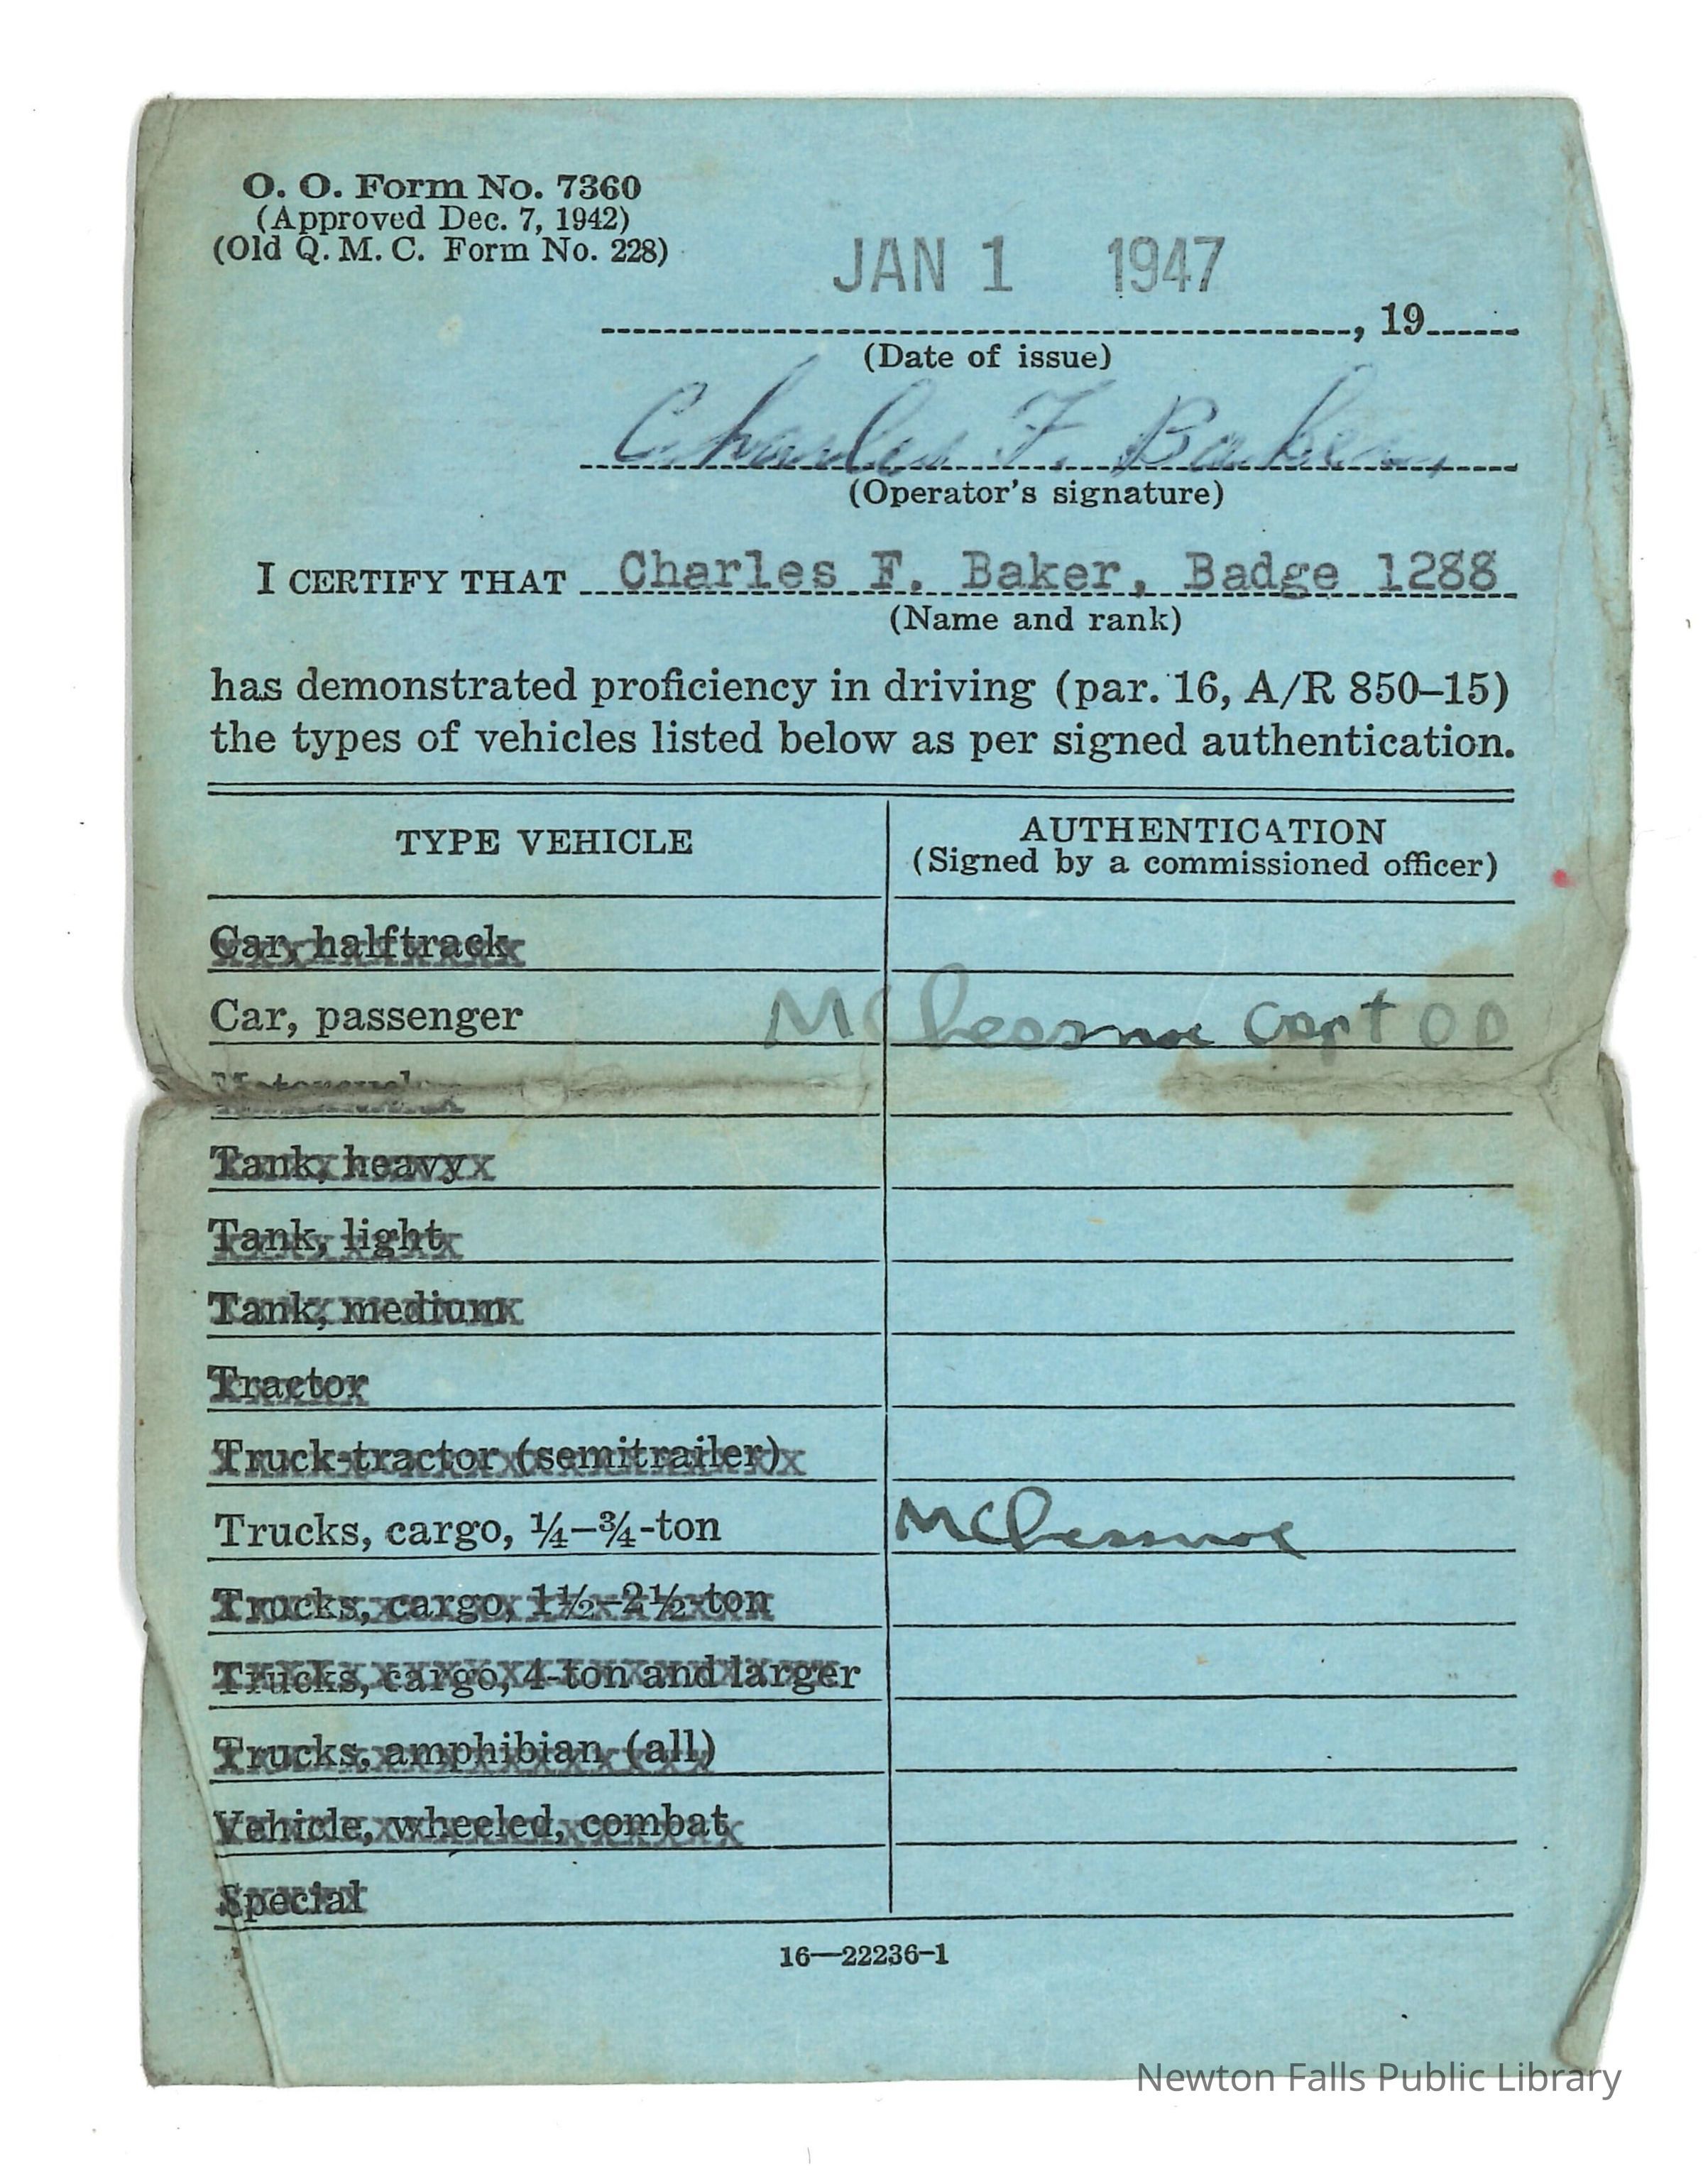 O. O. Form No. 7360
(Approved Dec. 7, 1942)
(Old Q. M. C. Form No. 228)
JAN 1 1947
, 19
(Date of issue)
Charles F. Baker
(Operator's signature)
I CERTIFY THAT Charles F. Baker, Badge 1288
(Name and rank)
has demonstrated proficiency in driving (par. 16, A/R 850–15)
the types of vehicles listed below as per signed authentication.
TYPE VEHICLE
AUTHENTICATION
(Signed by a commissioned officer)
Car, halftrack
Car, passenger Capt OD
Motorcycle
Tank, heavy
Tank, light
Tank, medium
Tractor
Truck-tractor (semitrailer)
Trucks, cargo, ¼–¾-ton
Trucks, cargo, 1½–2½-ton
Trucks, cargo, 4-ton and larger
Trucks, amphibian (all)
Vehicle, wheeled, combat
Special
16—22236-1
Newton Falls Public Library